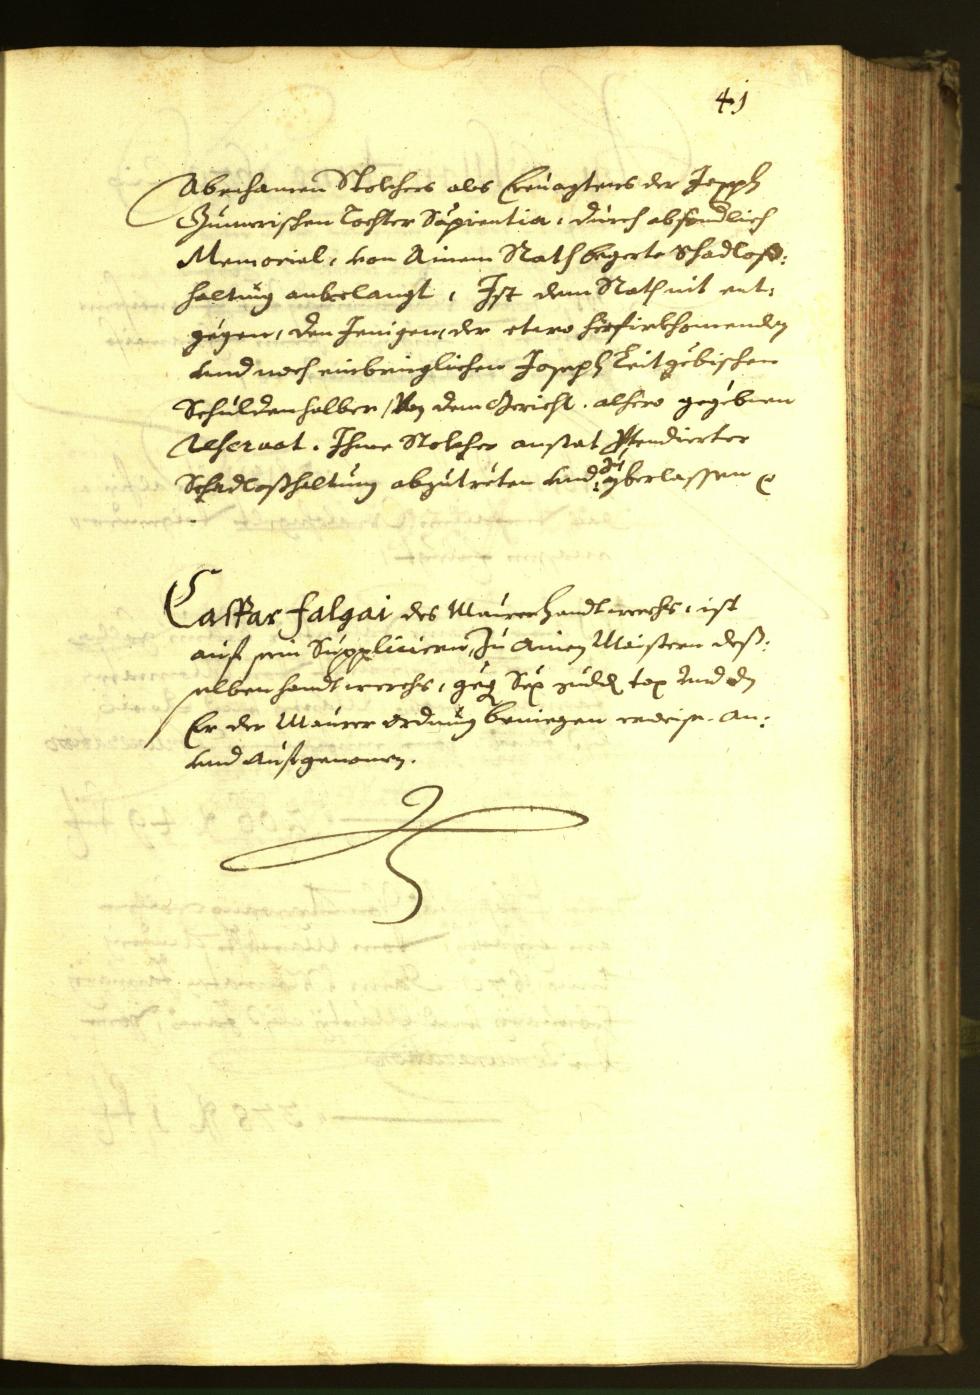 41
Abrahamen Stolchers als Crevagtens der Joseph
Gumerischen Tochter Sapientia, durch absondlich
Memorial, von Ainem Rath begerte Schadloß:
haltung anbelangt, Ist dem Rath nit ent:
gegen, den Jenigen, der etwo herfirkhomenden
und noch einbringlichen Joseph Leitgebischen
Schulden halber, Von dem Gericht alhero gegebnen
Reservat. Ihme Stolcher anstat praetendierter
Schadloßhaltung abzutreten und zu yberlassen
Caspar falgai des Maurer handtwerchs, ist
auf sein Suppliciern, Zu Ainen Maistern deß:
selben handtwerchs, geg Sex guld tax und
Er der Maurer ordnung beniegen erweise. An:
und Aufgenomen.